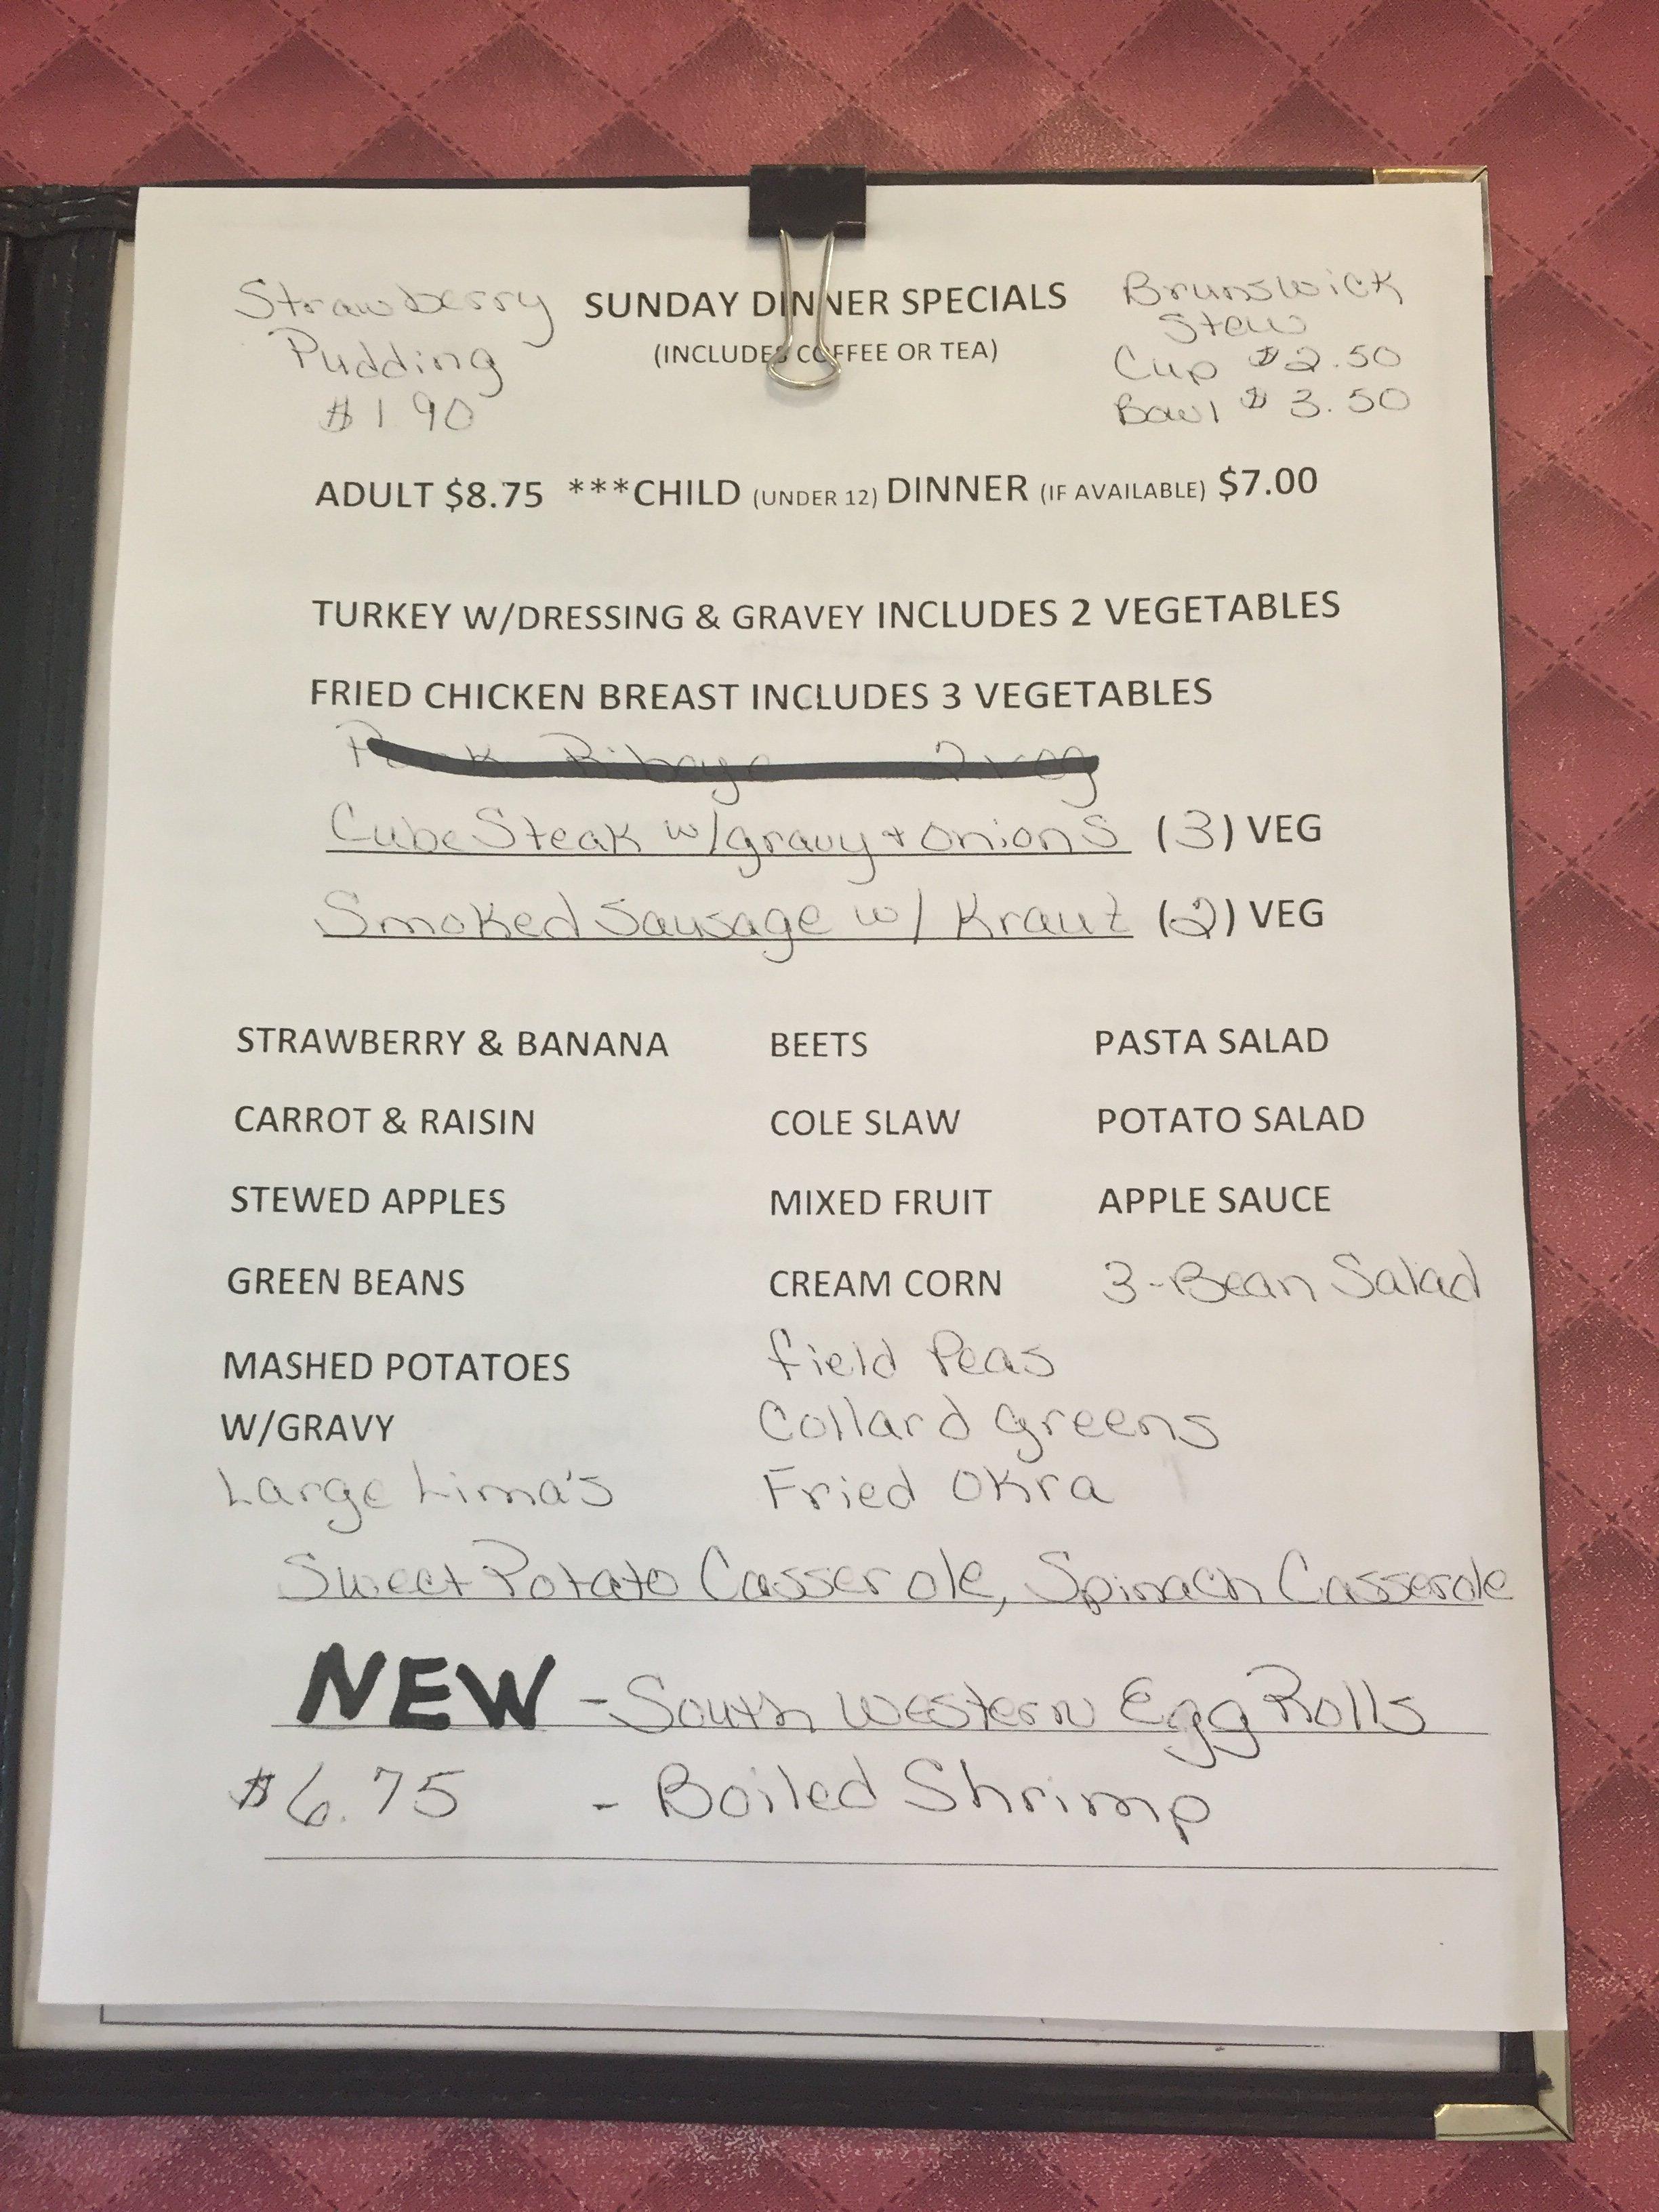 Strawberry
Pudding
$1.90
SUNDAY DINNER SPECIALS
(INCLUDES COFFEE OR TEA)
Brunswick
Stew
Cup $2.50
Bowl $3.50
ADULT $8.75 ***CHILD (UNDER 12) DINNER (IF AVAILABLE) $7.00
TURKEY W/DRESSING & GRAVEY INCLUDES 2 VEGETABLES
FRIED CHICKEN BREAST INCLUDES 3 VEGETABLES
Pork Ribeye 2 veg
Cube Steak w/gravy + onions (3) VEG
Smoked Sausage w/ Kraut (2) VEG
STRAWBERRY & BANANA BEETS PASTA SALAD
CARROT & RAISIN COLE SLAW POTATO SALAD
STEWED APPLES MIXED FRUIT APPLE SAUCE
GREEN BEANS CREAM CORN 3-Bean Salad
MASHED POTATOES field Peas
W/GRAVY Collard greens
Large Lima's Fried Okra
Sweet Potato Casserole, Spinach Casserole
NEW - South Western Egg Rolls
$6.75 - Boiled Shrimp